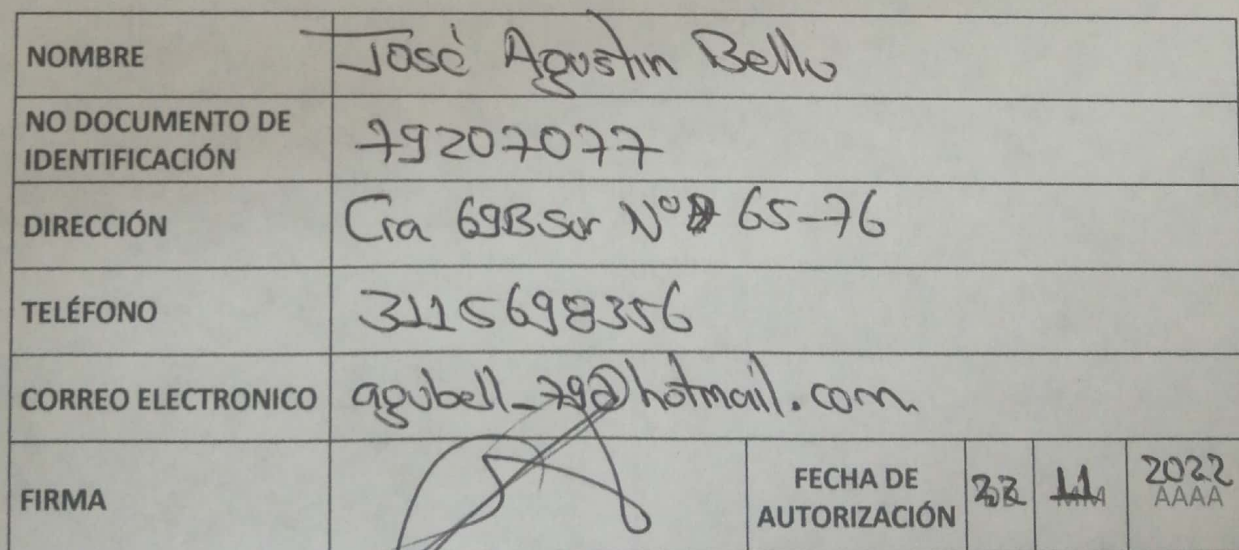 NOMBRE José Agustin Bello
NO DOCUMENTO DE
IDENTIFICACIÓN 79207077
DIRECCIÓN Cra 69B Sur Nº 65-76
TELÉFONO 3115698356
CORREO ELECTRONICO agubell_79@hotmail.com
FIRMA FECHA DE
AUTORIZACIÓN 22 11 2022
AAAA